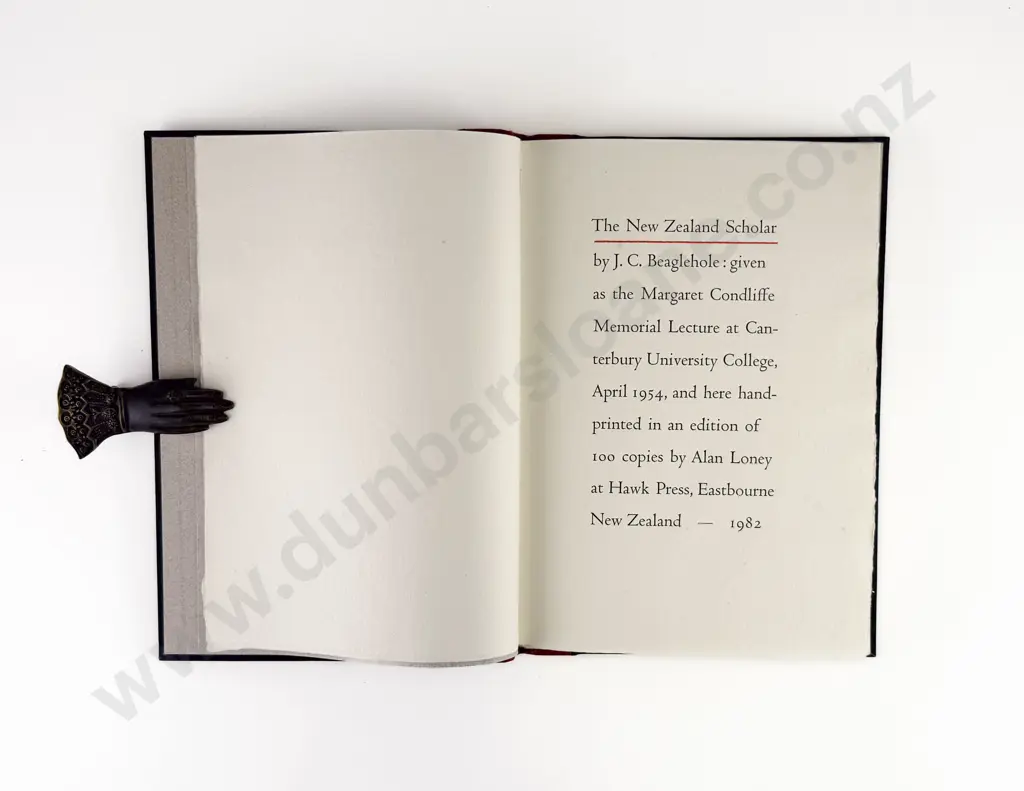 The New Zealand Scholar
by J. C. Beaglehole : given
as the Margaret Condliffe
Memorial Lecture at Can-
terbury University College,
April 1954, and here hand-
printed in an edition of
100 copies by Alan Loney
at Hawk Press, Eastbourne
New Zealand — 1982
www.dunbarsloane.co.nz